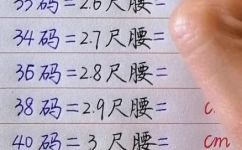 33码=2.6尺腰=
34码=2.7尺腰=
36码=2.8尺腰=
38码=2.9尺腰= c
40码=3尺腰= cm